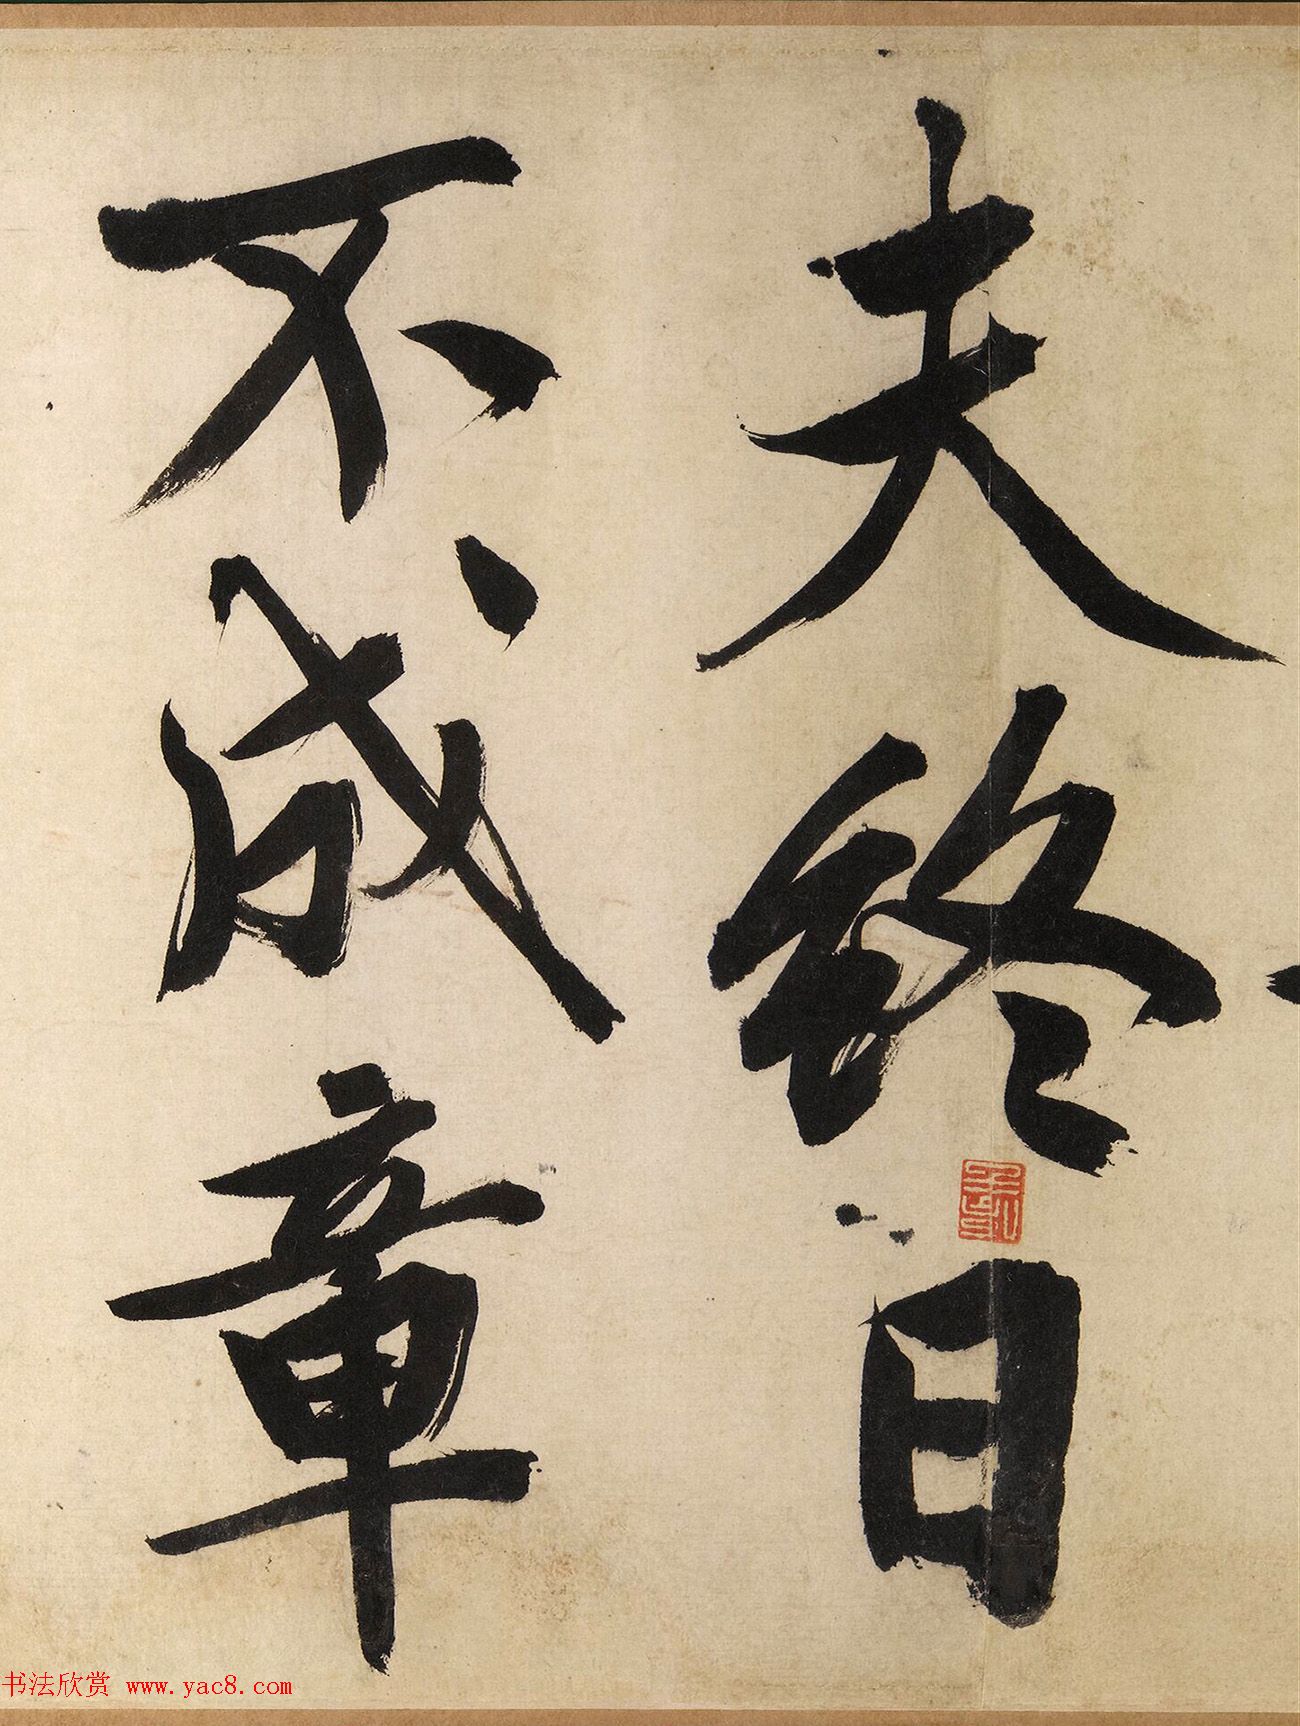 夫终日
不成章
书法欣赏 www.yac8.com